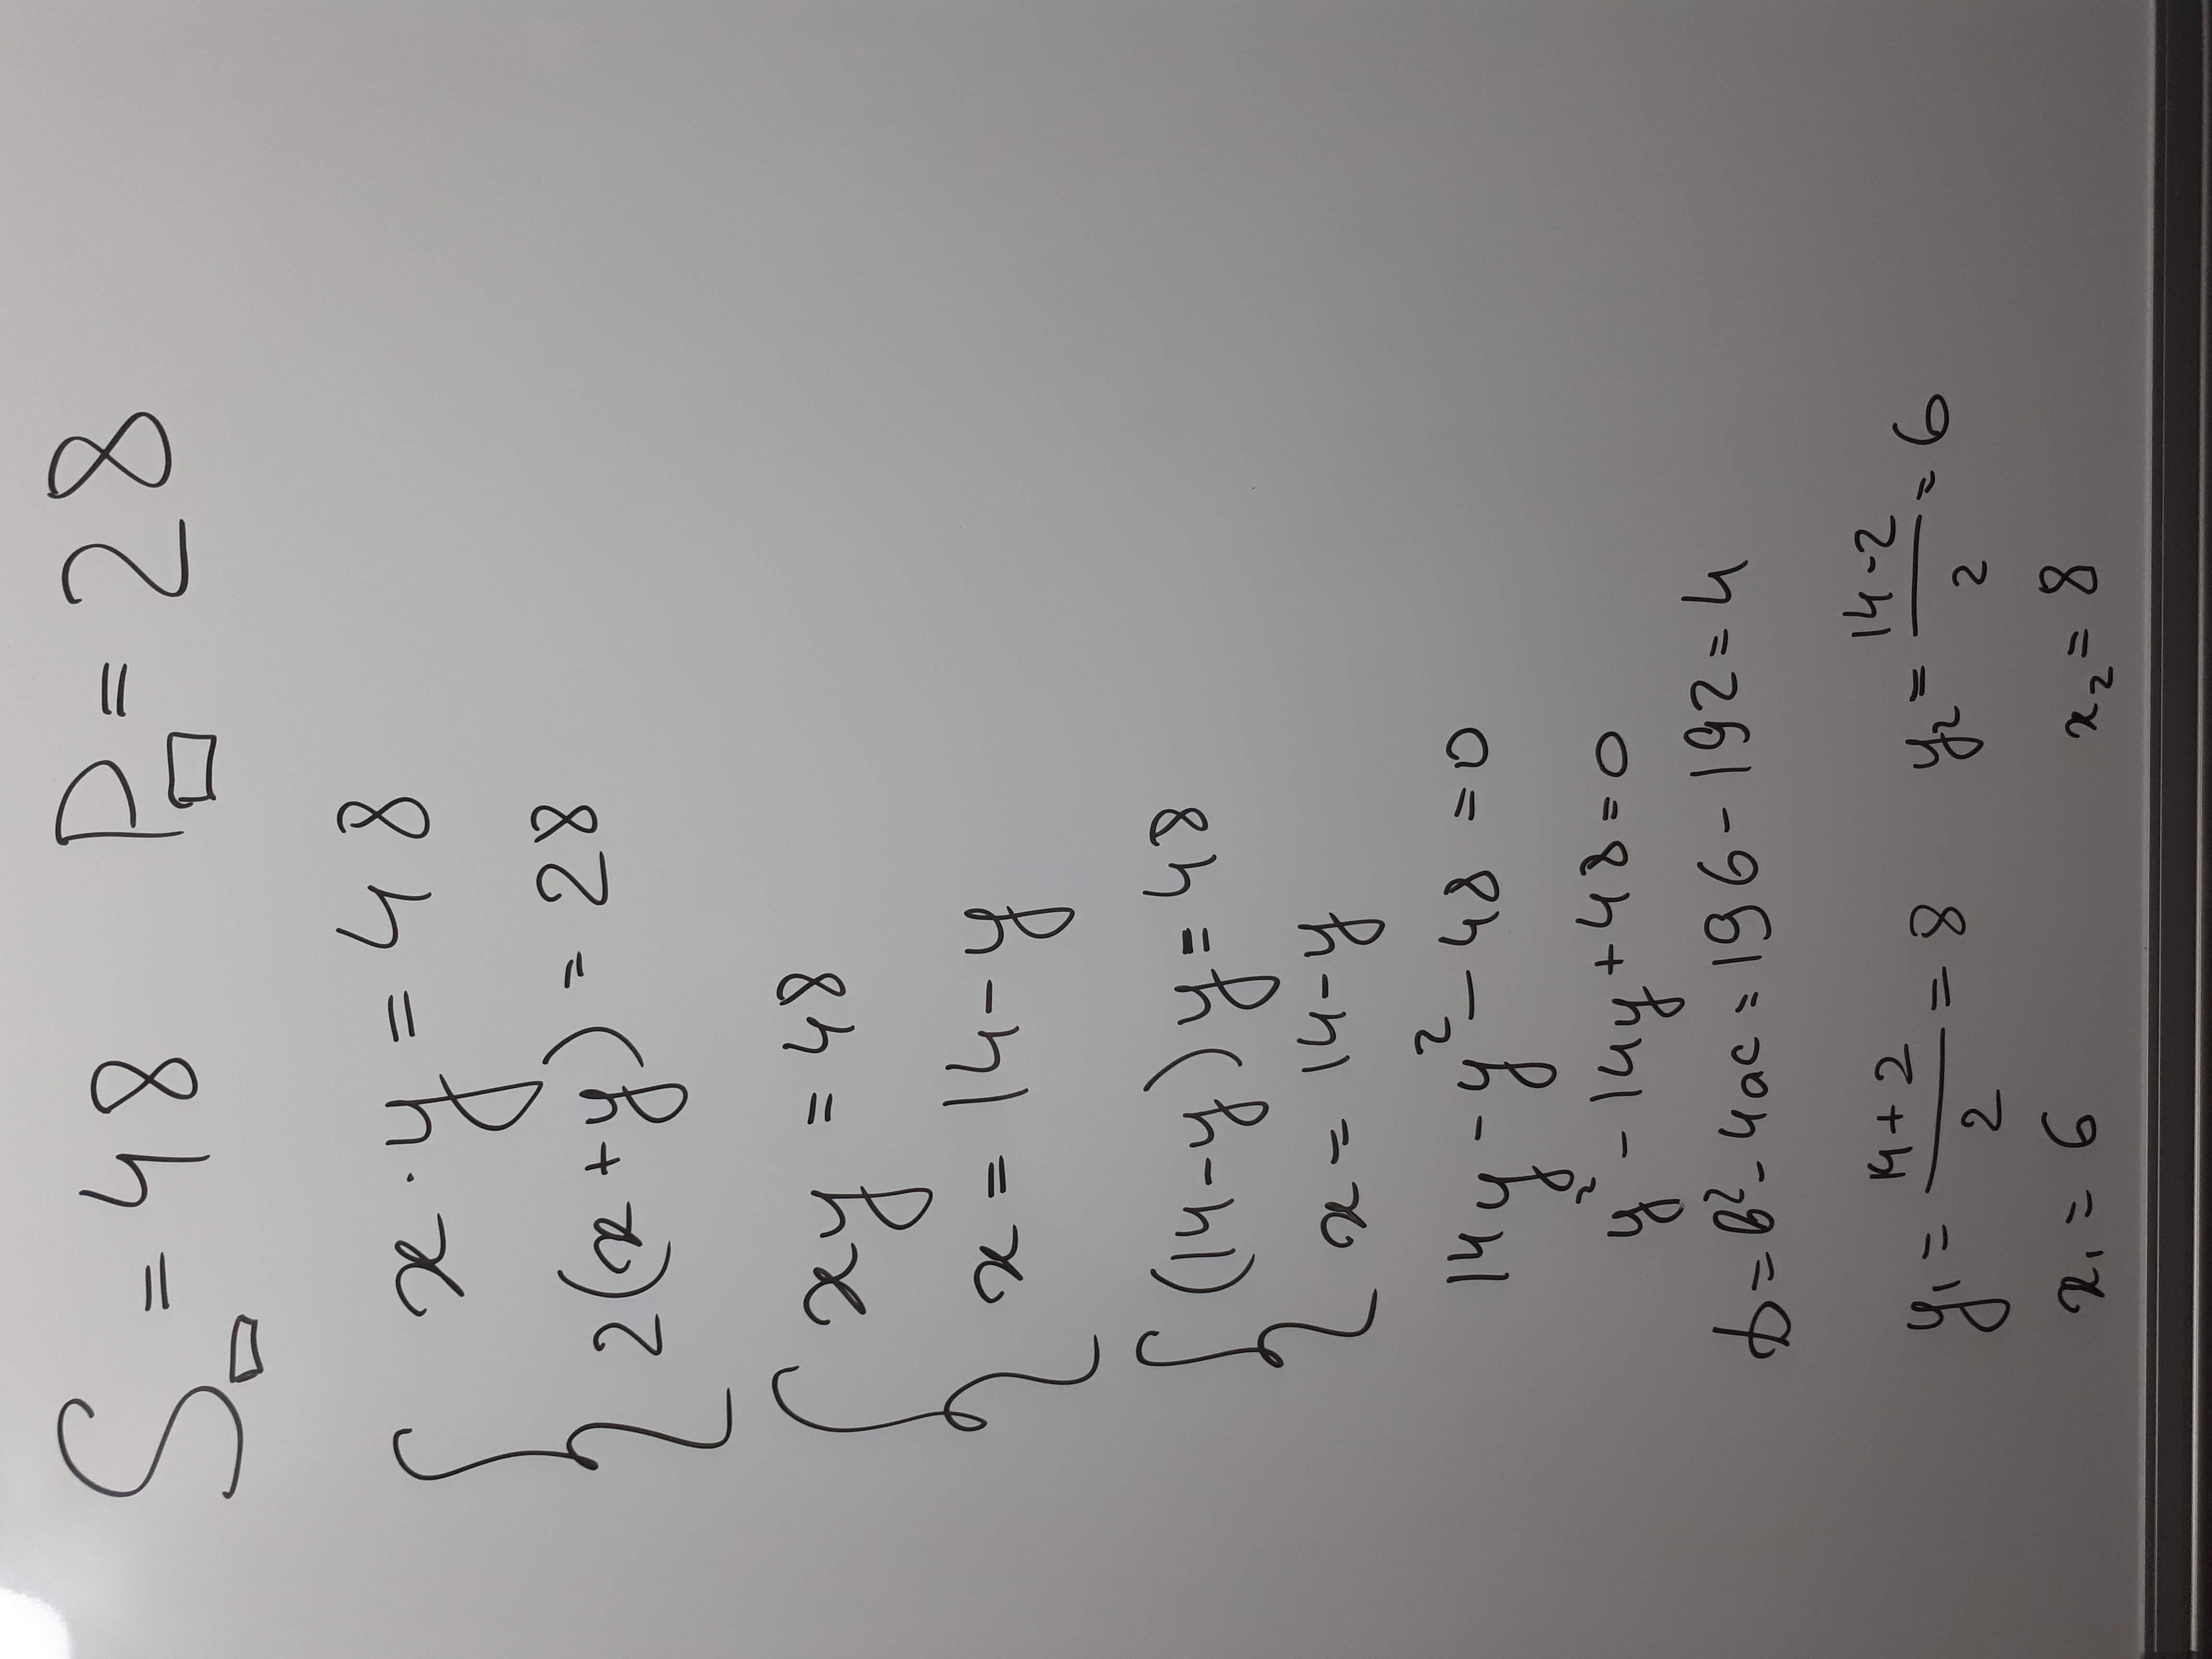 S▭ = 48 P▭ = 28
x · y = 48
2(x + y) = 28
xy = 48
x = 14 - y
(14 - y) y = 48
x = 14 - y
14y - y² - 48 = 0
y² - 14y + 48 = 0
D = b² - 4ac = 196 - 192 = 4
y₁ = (14 + 2)/2 = 8 y₂ = (14 - 2)/2 = 6
x₁ = 6 x₂ = 8